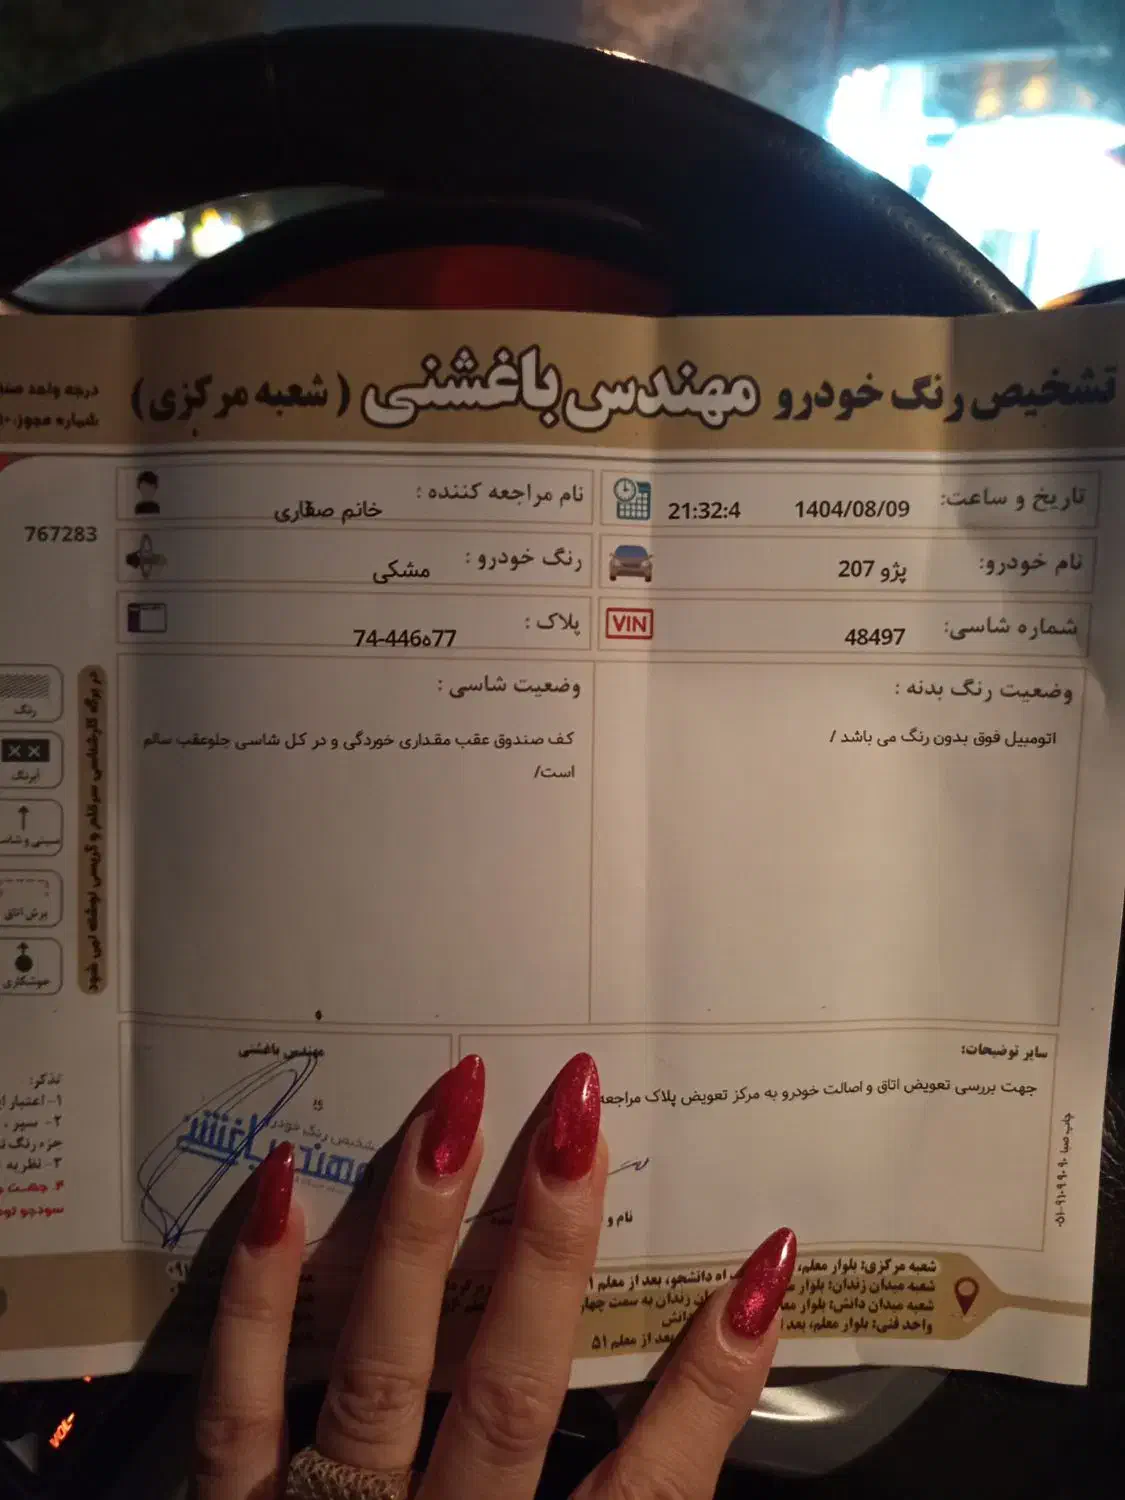 تشخیص رنگ خودرو مهندس باغشنی ( شعبه مرکزی )
درجه واحد
شماره مجوز:
تاریخ و ساعت: 1404/08/09 21:32:4
نام مراجعه کننده : خانم صفاری
767283
نام خودرو: پژو 207
رنگ خودرو : مشکی
شماره شاسی: 48497
VIN
پلاک : 74-446ه77
وضعیت رنگ بدنه :
اتومبیل فوق بدون رنگ می باشد /
وضعیت شاسی :
کف صندوق عقب مقداری خوردگی و در کل شاسی جلوعقب سالم
است/
در برگه کارشناسی سرقلم و گریسی نوشته نمی شود
رنگ
آبرنگ
سینی و شاسی
برش اتاق
جوشکاری
سایر توضیحات:
جهت بررسی تعویض اتاق و اصالت خودرو به مرکز تعویض پلاک مراجعه
نام و
مهندس باغشنی
تشخیص رنگ خودرو
مهندس باغشنی
تذکر:
۱- اعتبار
۲- سپر ،
جزء رنگ
۳- نظریه
۴. جهت
سودجو
چاپ صبا
شعبه مرکزی: بلوار معلم، دانشجو، بعد از معلم
شعبه میدان زندان: بلوار زندان به سمت
شعبه میدان دانش: بلوار دانش
واحد فنی: بلوار معلم، بعد از معلم ۵۱
VOL-